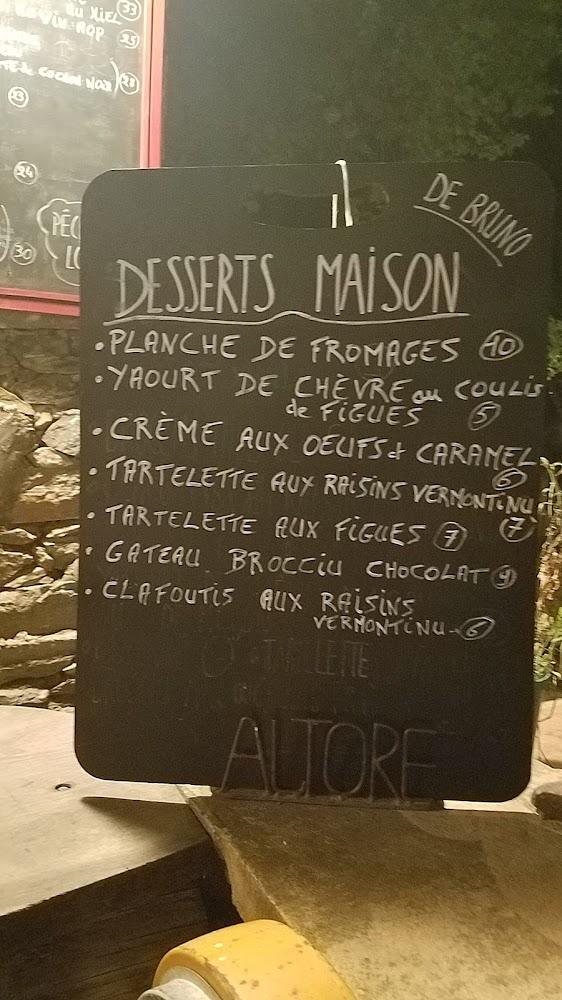 33
DU MIEL
DE VIN AOP 25
COCHON NOIR 28
23
24
30
DE BRUNO
DESSERTS MAISON
• PLANCHE DE FROMAGES 10
• YAOURT DE CHÈVRE au COULIS
de FIGUES 5
• CRÈME AUX OEUFS et CARAMEL
6
• TARTELETTE AUX RAISINS VERMONTINU
7
• TARTELETTE AUX FIGUES 7
• GATEAU BROCCIU CHOCOLAT 9
• CLAFOUTIS AUX RAISINS
VERMONTINU - 6
TARTELETTE
ALTORE